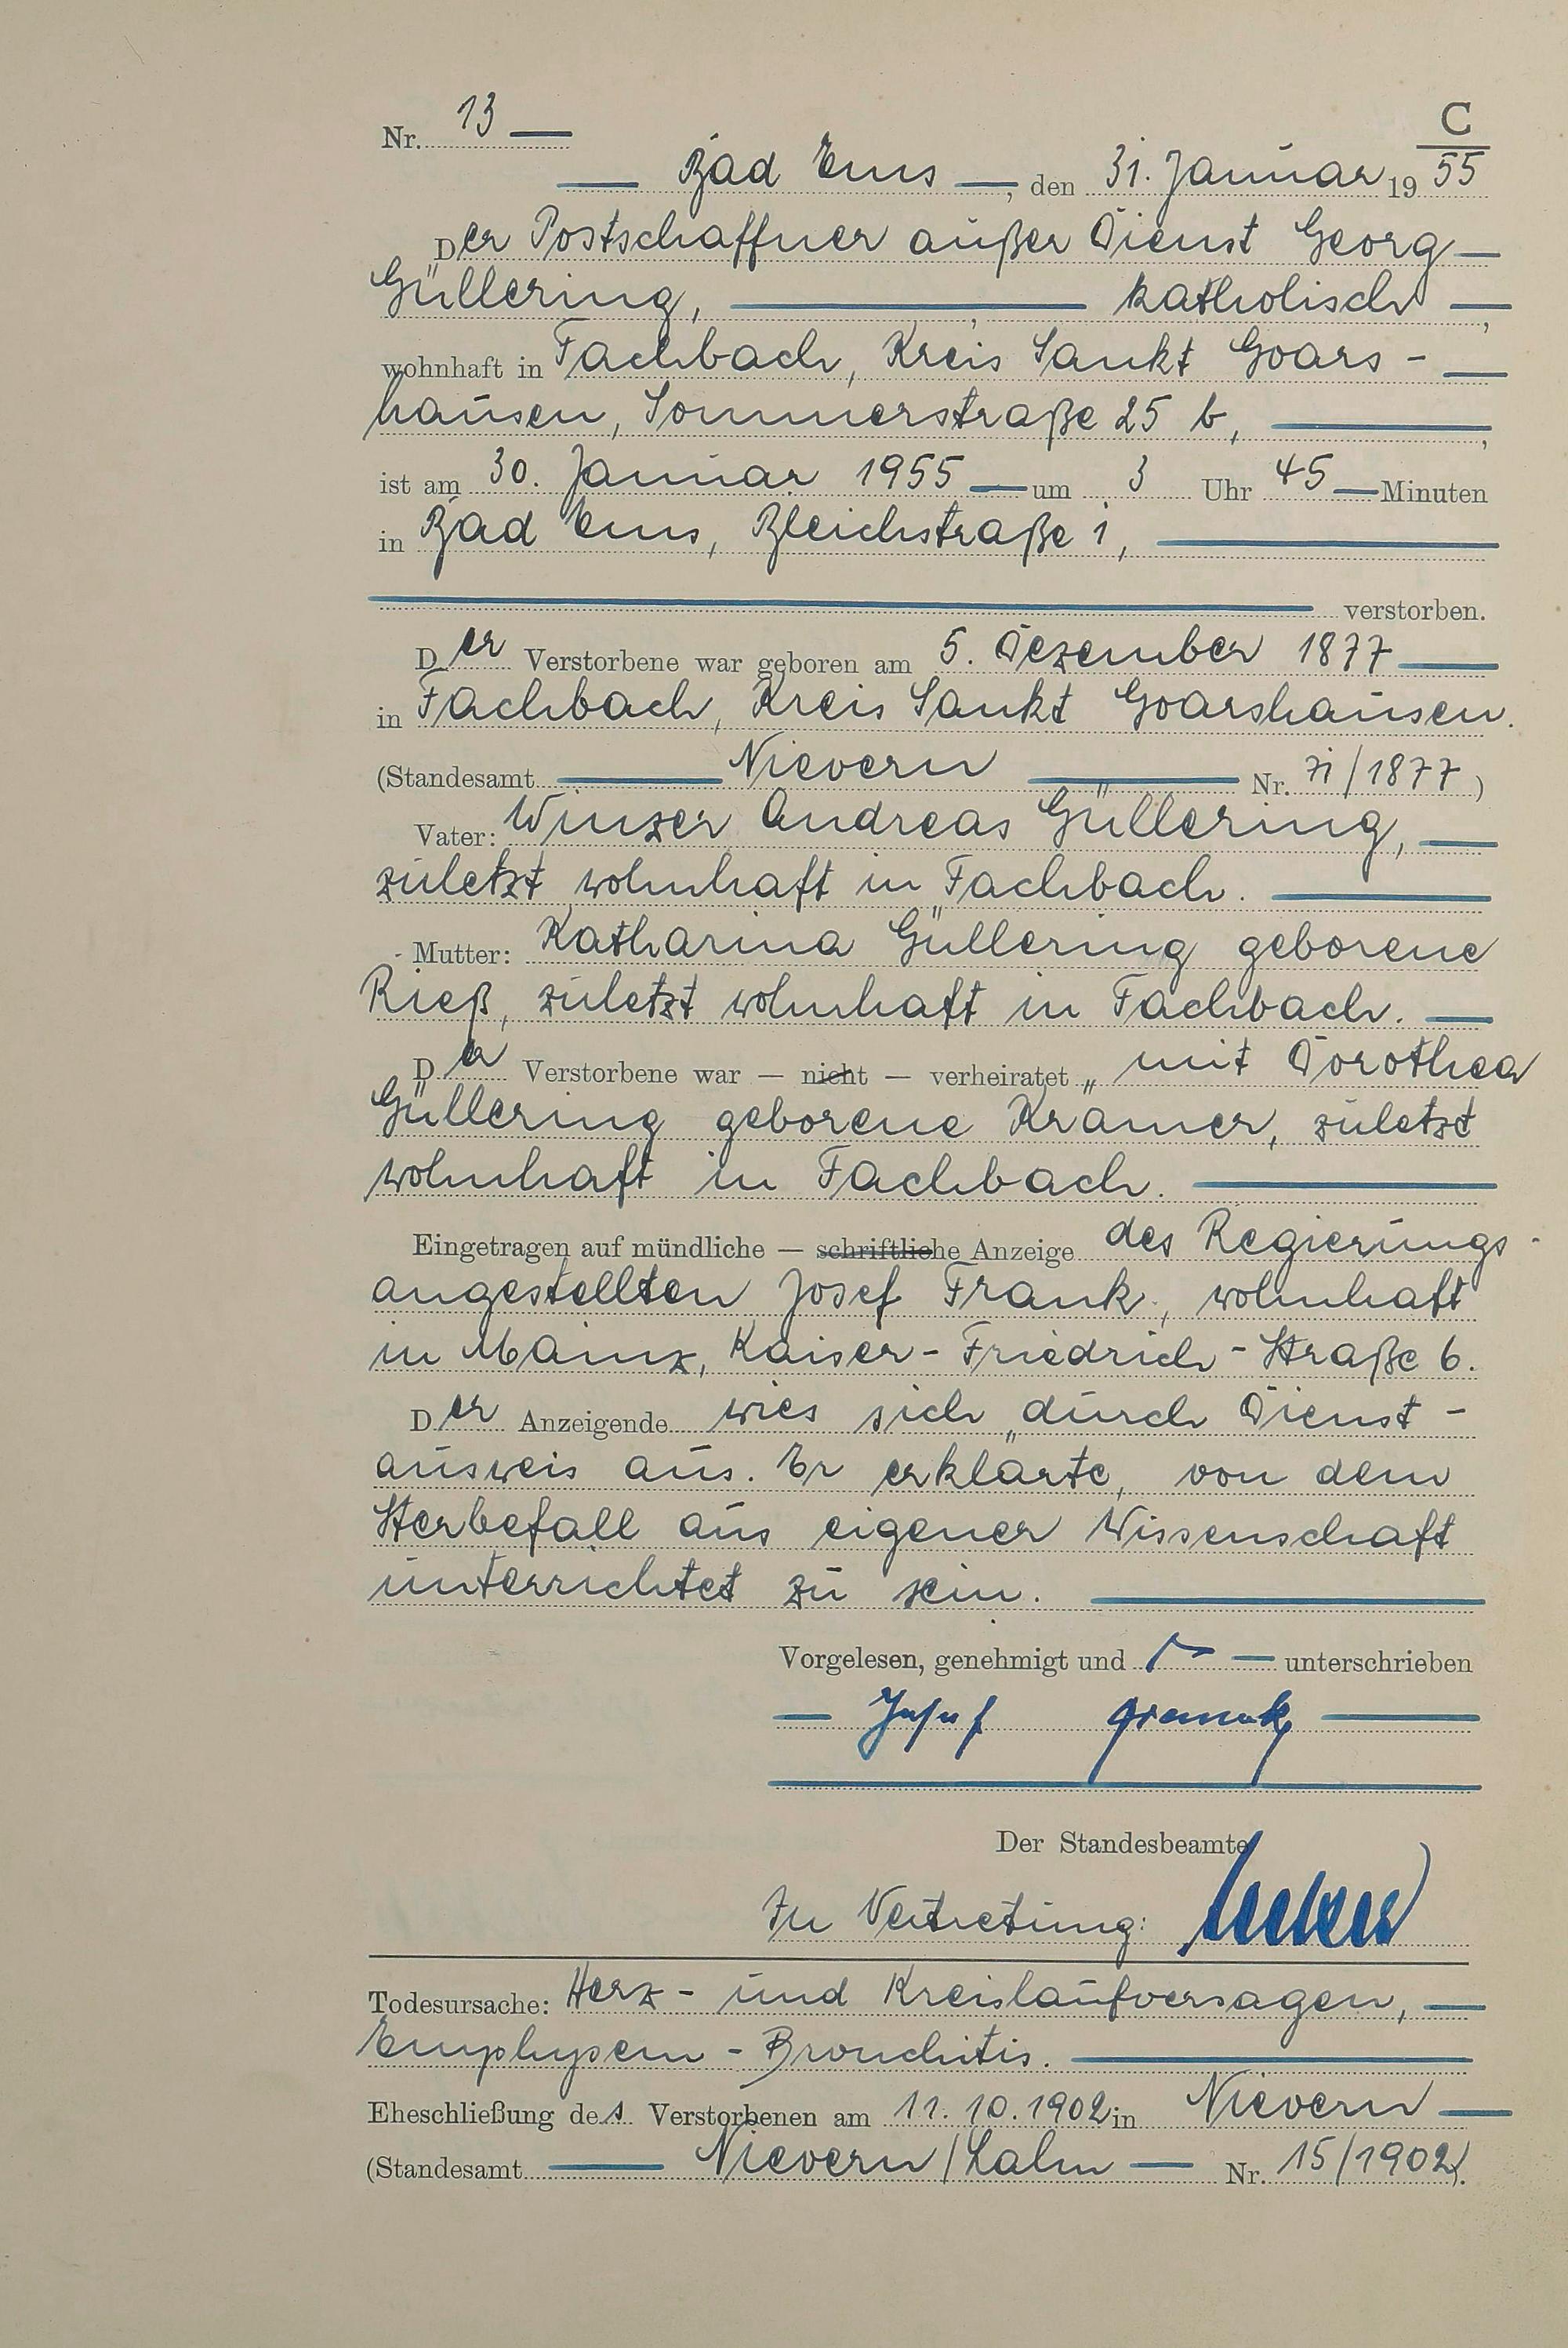 C
Nr. 13 —
— Bad Ems —, den 31. Januar 19 55
Der Postschaffner außer Dienst Georg —
Güllering, — katholisch —,
wohnhaft in Fachbach, Kreis Sankt Goars-
hausen, Sommerstraße 25 b, —,
ist am 30. Januar 1955 — um 3 Uhr 45 — Minuten
in Bad Ems, Bleichstraße 1, —
— verstorben.
Der Verstorbene war geboren am 5. Dezember 1877 —
in Fachbach, Kreis Sankt Goarshausen.
(Standesamt — Nievern — Nr. 71/1877)
Vater: Winzer Andreas Güllering, —
zuletzt wohnhaft in Fachbach. —
Mutter: Katharina Güllering geborene
Rieß, zuletzt wohnhaft in Fachbach. —
Der Verstorbene war — nicht — verheiratet mit Dorothea
Güllering geborene Kramer, zuletzt
wohnhaft in Fachbach. —
Eingetragen auf mündliche — schriftliche Anzeige des Regierungs-
angestellten Josef Frank, wohnhaft
in Mainz, Kaiser-Friedrich-Straße 6.
Der Anzeigende wies sich durch Dienst-
ausweis aus. Er erklärte, von dem
Sterbefall aus eigener Wissenschaft
unterrichtet zu sein. —
Vorgelesen, genehmigt und — unterschrieben
— Josef Frank —
Der Standesbeamte
In Vertretung:
Todesursache: Herz- und Kreislaufversagen, —
Emphysem-Bronchitis. —
Eheschließung des Verstorbenen am 11.10.1902 in Nievern —
(Standesamt — Nievern/Lahn — Nr. 15/1902).